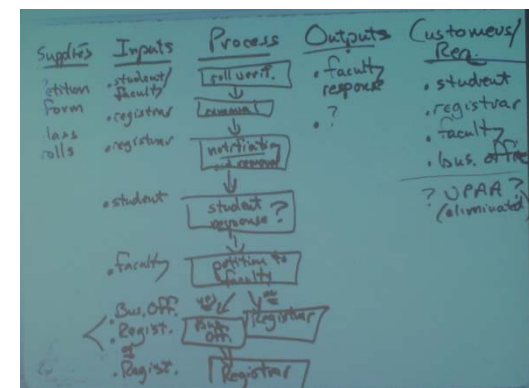 Supplies
etition
form
lass
rolls
Inputs
• student/
faculty
• registrar
• registrar
• student
• faculty
• Bus. Off.
• Regist.
• Regist.
Process
roll verif.
removal
notification
student
response?
petition to
faculty
yes
Bus.
Off.
Registrar
Registrar
Outputs
• faculty
response
• ?
Customers/
Req.
• student
• registrar
• faculty
• bus. office
? VPAA ?
(eliminated)